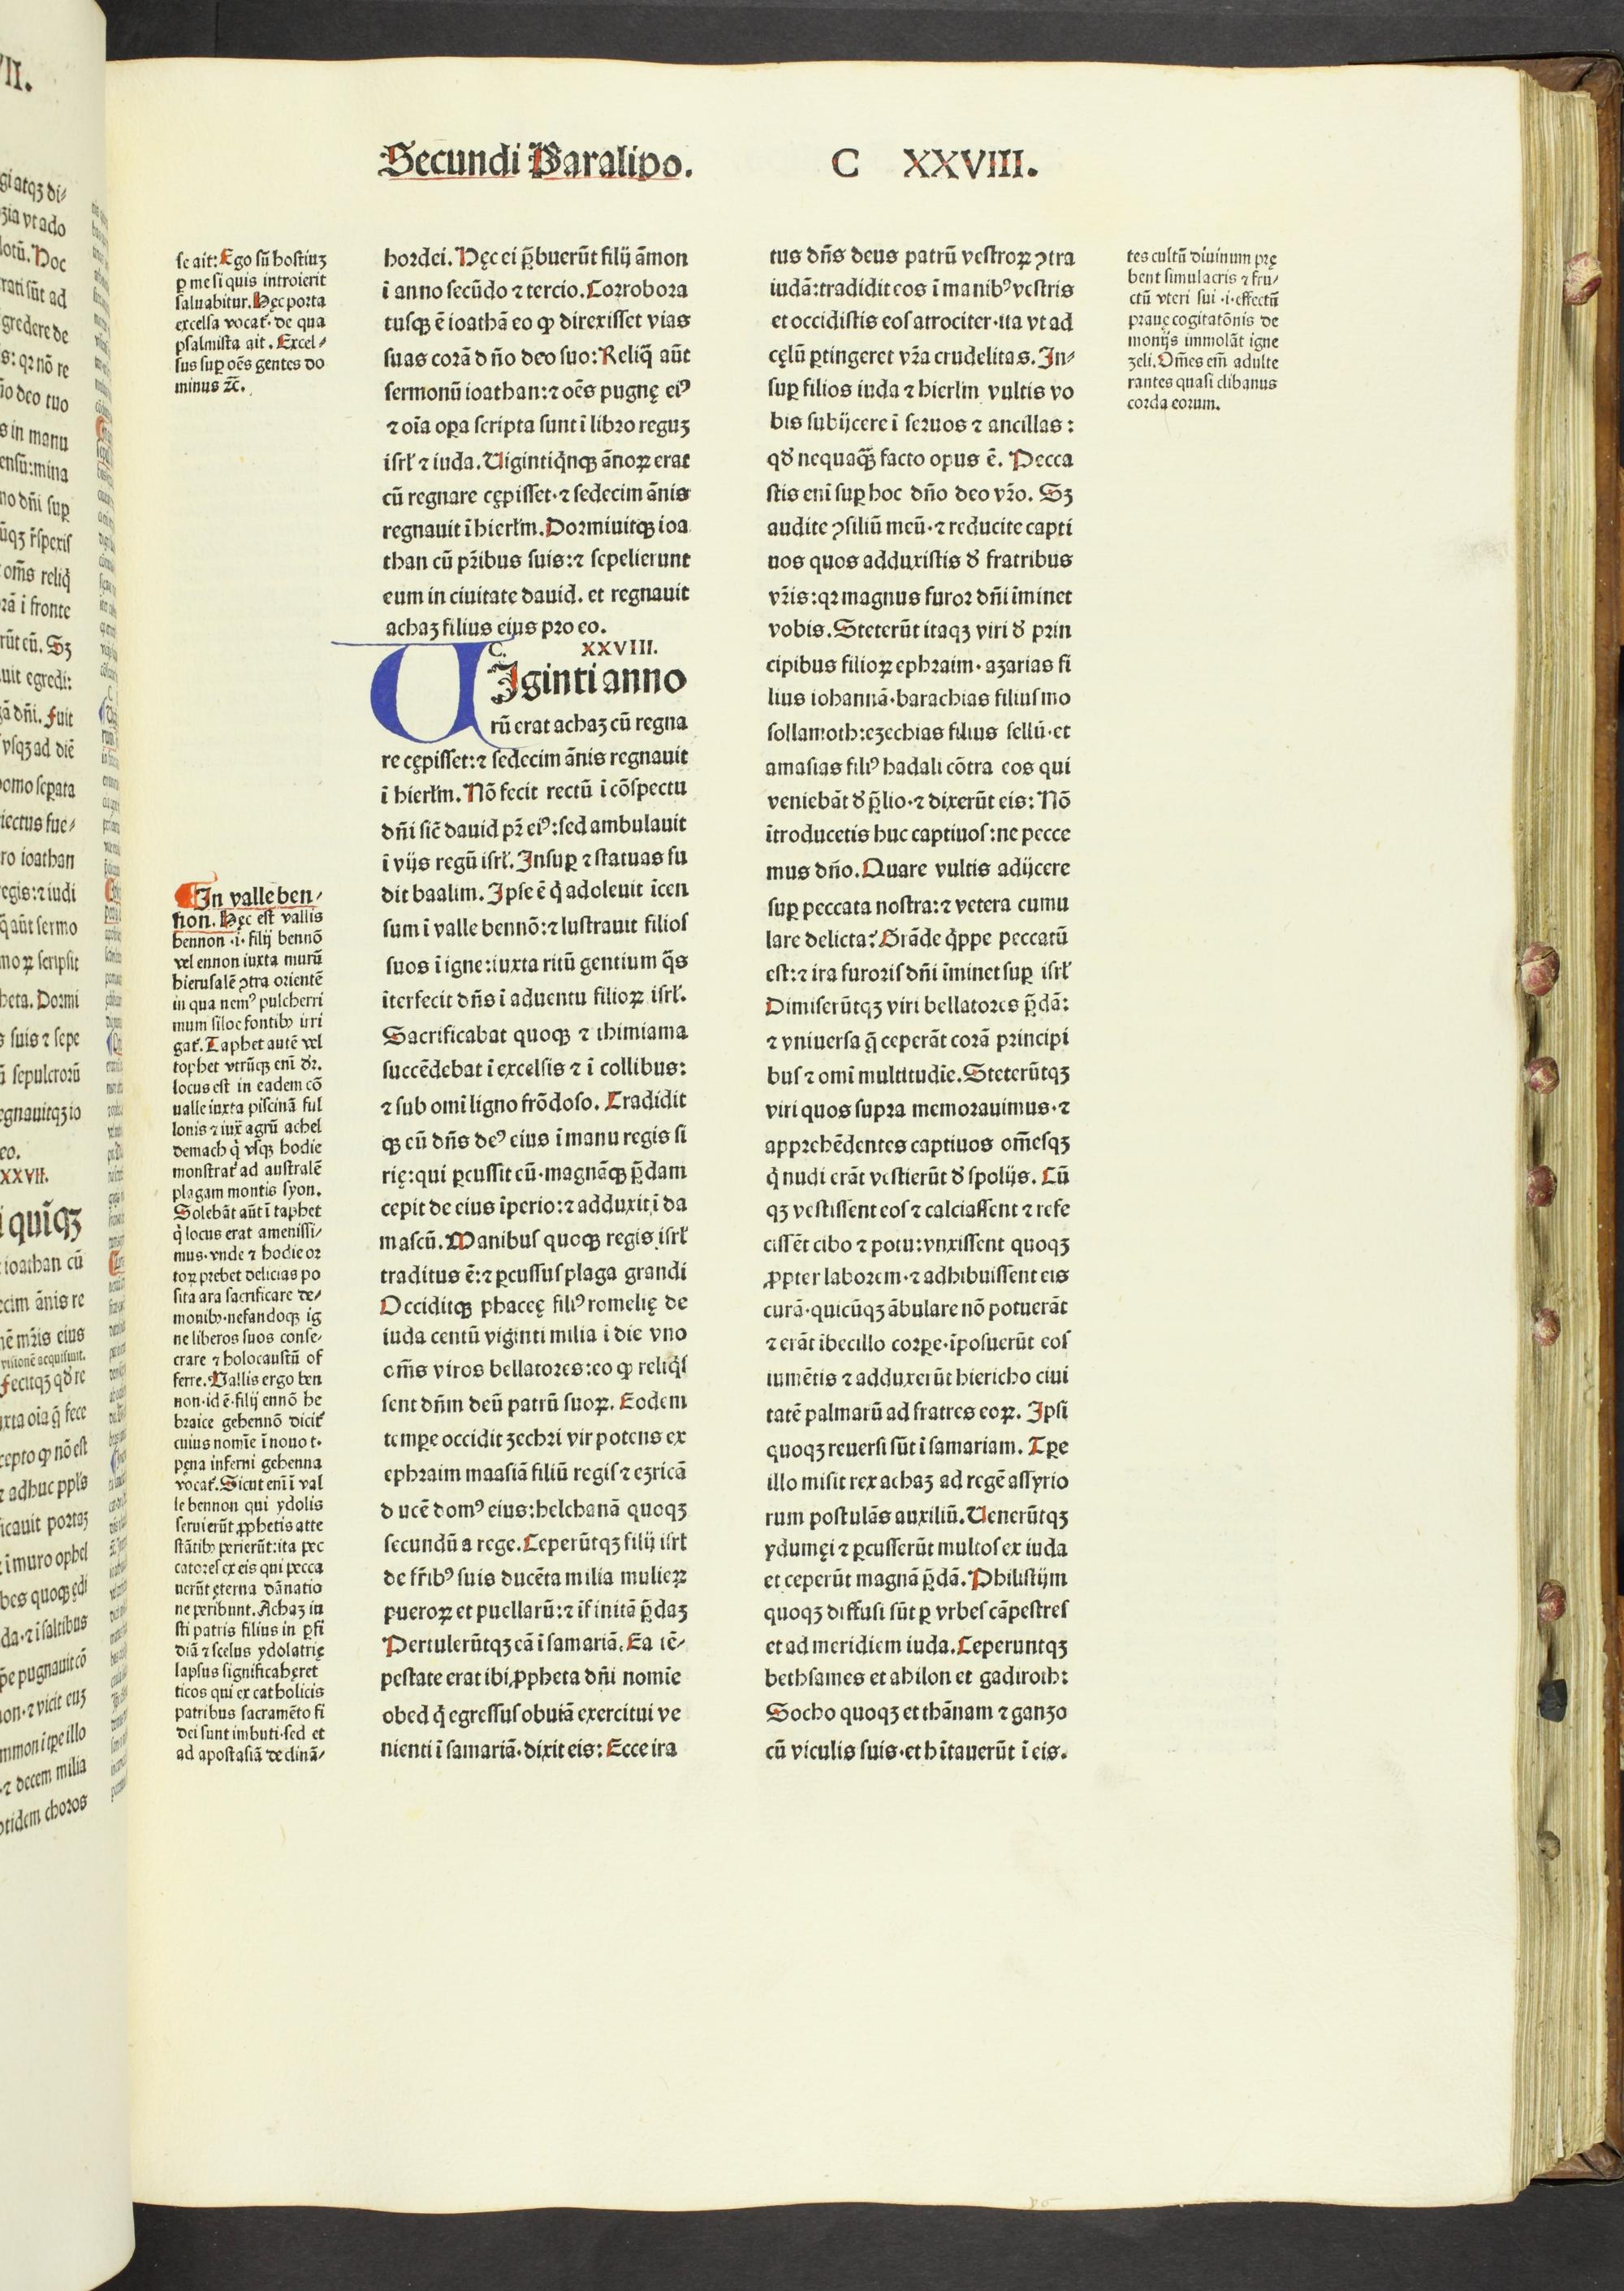 Secundi Paralipo.
C XXVIII.
se ait: Ego sū hostiuꝫ
ꝑ me si quis introierit
saluabitur. Hęc porta
excelsa vocat᷑. de qua
psalmista ait. Excel⸗
sus suꝑ oēs gentes do
minus ⁊c̄.
¶ In valle ben⸗
non. Hęc est vallis
bennon .i. filij bennō
vel ennon iuxta murū
hierusalē ꝯtra orientē
in qua nemꝰ pulcherri
mum siloe fontibꝫ irri
gat᷑. Taphet autē vel
tophet vtrūqꝫ eni ꝺr̄.
locus est in eadem cō
ualle iuxta piscinā ful
lonis ⁊ iux̄ agrū achel
demach q̇ vsqꝫ hodie
monstrat᷑ ad australē
plagam montis syon.
Solebāt aūt ī taphet
q̇ locus erat amenissi⸗
mus. vnde ⁊ hodie or
toꝝ prebet delicias po
sita ara sacrificare de⸗
monibꝫ. nefandoqꝫ ig
ne liberos suos conse⸗
crare ⁊ holocaustū of
ferre. Vallis ergo ben
non. id ē. filij ennō he
braice gehennō dicit᷑
cuius nomīe ī nouo t.
pęna inferni gehenna
vocat᷑. Sicut enī ī val
le bennon qui ydolis
seruierūt ꝓphetis atte
stātibꝫ perierūt: ita pec
catores ex eis qui pecca
uerūt ęterna dānatio
ne peribunt. Achaz iu
sti patris filius in ꝑfi
diā ⁊ scelus ydolatrię
lapsus significat hęret
ticos qui ex catholicis
patribus sacramēto fi
dei sunt imbuti. sed et
ad apostasiā declinā⸗
hordei. Hęc ei p̄buerūt filij āmon
ī anno secūdo ⁊ tercio. Corrobora
tusqꝫ ē ioathā eo ꝙ direxisset vias
suas corā dño deo suo: Reliq̄ aūt
sermonū ioathan: ⁊ oēs pugnę eiꝰ
⁊ oīa oꝑa scripta sunt ī libro reguꝫ
isrl̓ ⁊ iuda. Uigintiq̇nqꝫ ānoꝝ erat
cū regnare cępisset. ⁊ sedecim ānis
regnauit ī hierl̓m. Dormiuitqꝫ ioa
than cū pr̄ibus suis: ⁊ sepelierunt
eum in ciuitate dauid. et regnauit
achaz filius eius pro eo.
C. XXVIII.
UIginti anno
rū erat achaz cū regna
re cępisset: ⁊ sedecim ānis regnauit
ī hierl̓m. Nō fecit rectū ī cōspectu
dñi sic̄ dauid pr̄ eiꝰ: sed ambulauit
ī vijs regū isrl̓. Insuꝑ ⁊ statuas fu
dit baalim. Ipse ē q̇ adoleuit īcen
sum ī valle bennō: ⁊ lustrauit filios
suos ī igne: iuxta ritū gentium q̄s
īterfecit dñs ī aduentu filioꝝ isrl̓.
Sacrificabat quoqꝫ ⁊ thimiama
succēdebat ī excelsis ⁊ ī collibus:
⁊ sub omī ligno frōdoso. Tradidit
qꝫ eū dñs deꝰ eius ī manu regis si
rię: qui ꝑcussit eū. magnāqꝫ p̄dam
cepit de eius īperio: ⁊ adduxit ī da
mascū. Manibus quoqꝫ regis isrl̓
traditus ē: ⁊ ꝑcussus plaga grandi
Occiditqꝫ phaceę filiꝰ romelię de
iuda centū viginti milia ī die vno
om̄s viros bellatores: eo ꝙ reliq̇s
sent dñm deū patrū suoꝝ. Eodem
temꝑe occidit zechri vir potens ex
ephraim maasiā filiū regis ⁊ ezricā
ducē domꝰ eius: helchanā quoqꝫ
secundū a rege. Ceperūtqꝫ filij isrl̓
de fr̄ibꝰ suis ducēta milia mulieꝝ
pueroꝝ et puellarū: ⁊ īfinitā p̄daꝫ
Pertulerūtqꝫ eā ī samariā. Ea tē⸗
pestate erat ibi ꝓpheta dñi nomīe
obed q̇ egressus obuiā exercitui ve
nienti ī samariā. dixit eis: Ecce ira
tus dñs deus patrū vestroꝝ ꝯtra
iudā: tradidit eos ī manibꝰ vestris
et occidistis eos atrociter. ita vt ad
cęlū ꝑtingeret vr̄a crudelitas. In⸗
suꝑ filios iuda ⁊ hierl̓m vultis vo
bis subijcere ī seruos ⁊ ancillas:
qꝺ nequaq̄ꝫ facto opus ē. Pecca
stis enī suꝑ hoc dño deo vr̄o. Sꝫ
audite ꝯsiliū meū. ⁊ reducite capti
uos quos adduxistis ꝺ fratribus
vr̄is: qꝛ magnus furor dñi īminet
vobis. Steterūt itaqꝫ viri ꝺ prin
cipibus filioꝝ ephraim. azarias fi
lius iohannā. barachias filius mo
sollamoth: ezechias filius sellū. et
amasias filiꝰ hadali cōtra eos qui
veniebāt ꝺ p̄lio. ⁊ dixerūt eis: Nō
ītroducetis huc captiuos: ne pecce
mus dño. Quare vultis adijcere
suꝑ peccata nostra: ⁊ vetera cumu
lare delicta? Grāde q̇ppe peccatū
est: ⁊ ira furoris dñi īminet suꝑ isrl̓
Dimiserūtqꝫ viri bellatores p̄dā:
⁊ vniuersa q̄ ceperāt corā principi
bus ⁊ omī multitudīe. Steterūtqꝫ
viri quos supra memorauimus. ⁊
apprehēdentes captiuos om̄esqꝫ
q̇ nudi erāt vestierūt ꝺ spolijs. Cū
qꝫ vestissent eos ⁊ calciassent ⁊ refe
cissēt cibo ⁊ potu: vnxissent quoqꝫ
ꝓpter laborem. ⁊ adhibuissent eis
curā. quicūqꝫ ābulare nō potuerāt
⁊ erāt ībecillo corꝑe. īposuerūt eos
iumētis ⁊ adduxerūt hiericho ciui
tatē palmarū ad fratres eoꝝ. Ipsi
quoqꝫ reuersi sūt ī samariam. Tꝑe
illo misit rex achaz ad regē assyrio
rum postulās auxiliū. Uenerūtqꝫ
ydumęi ⁊ ꝑcusserūt multos ex iuda
et ceperūt magnā p̄dā. Philistijm
quoqꝫ diffusi sūt ꝑ vrbes cāpestres
et ad meridiem iuda. Ceperuntqꝫ
bethsames et ahilon et gadiroth:
Socho quoqꝫ et thānam ⁊ ganzo
cū viculis suis. et hītauerūt ī eis.
tes cultū diuinum prę
bent simulacris ⁊ fru⸗
ctū vteri sui .i. effectū
prauę cogitatōnis de
monijs immolāt igne
zeli. Om̄es em̄ adulte
rantes quasi clibanus
corda eorum.